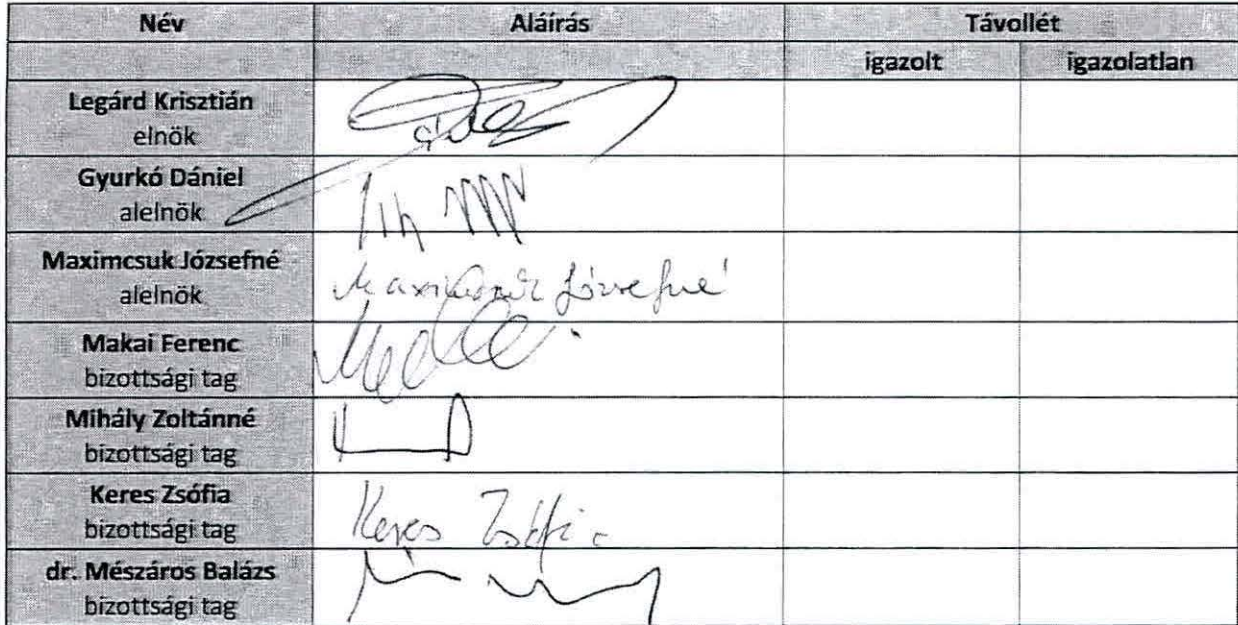 Név Aláírás Távollét
igazolt igazolatlan
Legárd Krisztián
elnök
Gyurkó Dániel
alelnök
Maximcsuk Józsefné
alelnök
Maximcsuk Józsefné
Makai Ferenc
bizottsági tag
Mihály Zoltánné
bizottsági tag
Keres Zsófia
bizottsági tag
Keres Zsófia
dr. Mészáros Balázs
bizottsági tag